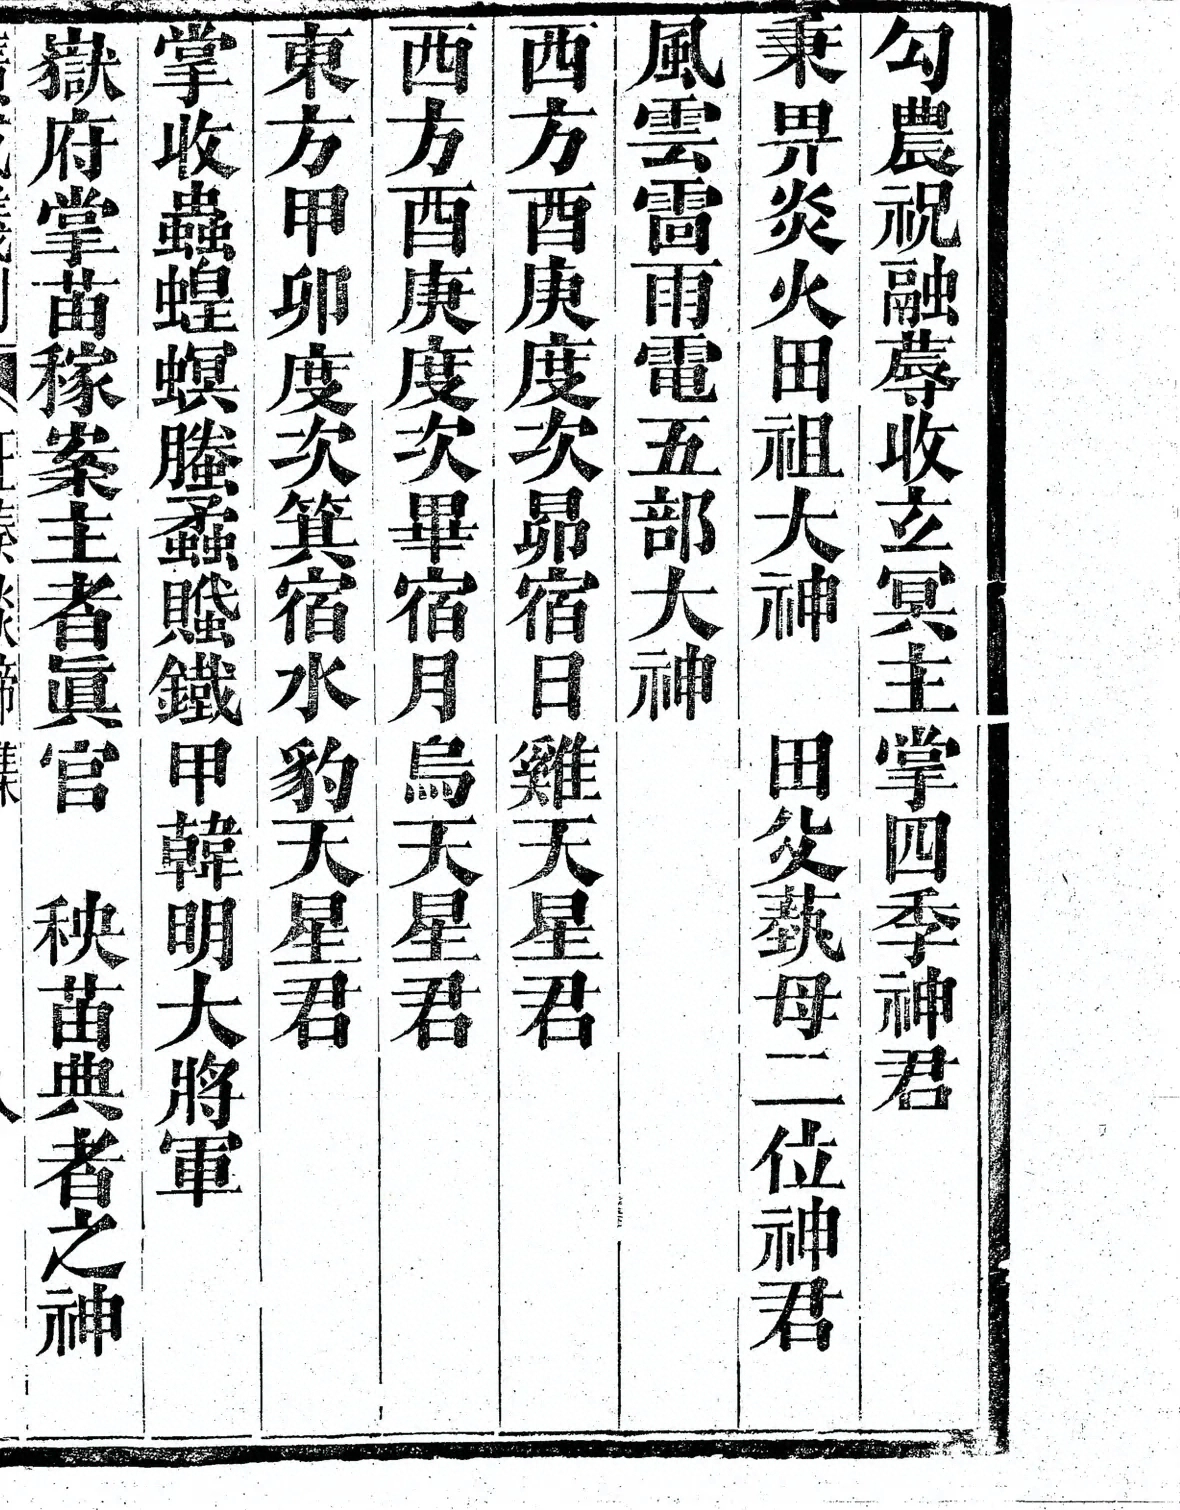 勾農祝融蓐收玄冥主掌四季神君
秉畀炎火田祖大神　田父蓺母二位神君
風雲雷雨電五部大神
西方酉庚度次昴宿日雞天星君
西方酉庚度次畢宿月烏天星君
東方甲卯度次箕宿水豹天星君
掌收蟲蝗螟螣蟊蠈鐵甲韓明大將軍
嶽府掌苗稼案主者眞官　秧苗典者之神